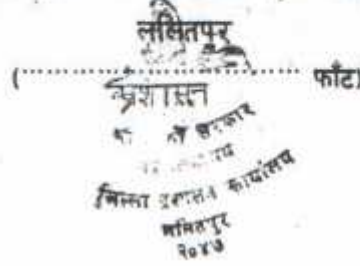 ललितपुर
(.................... फाँट)
प्रशासन
सरकार
जिल्ला प्रशासन कार्यालय
ललितपुर
२०४७